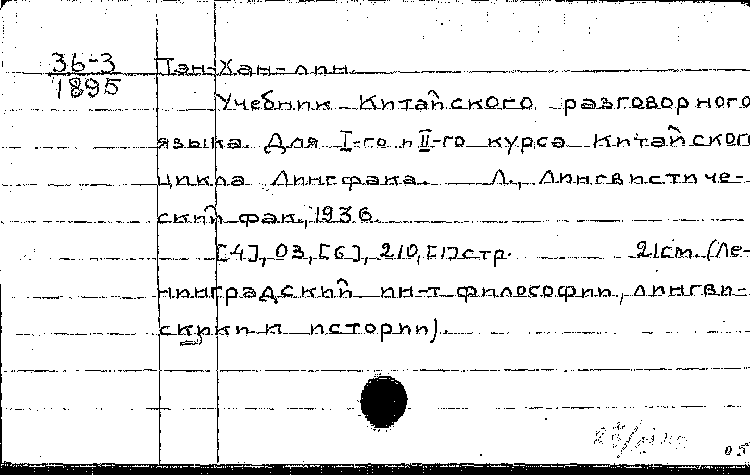 36-3
1895
Тэн-Хан-лин.
Учебник Китайского разговорного
языка. Для I-го и II-го курса Китайского
цикла Лингфака. Л., Лингвистиче-
ский фак., 1936.
[4], 03, [6], 210, [1] стр. 21см. (Ле-
нинградский ин-т философии, лингви-
скики и истории).